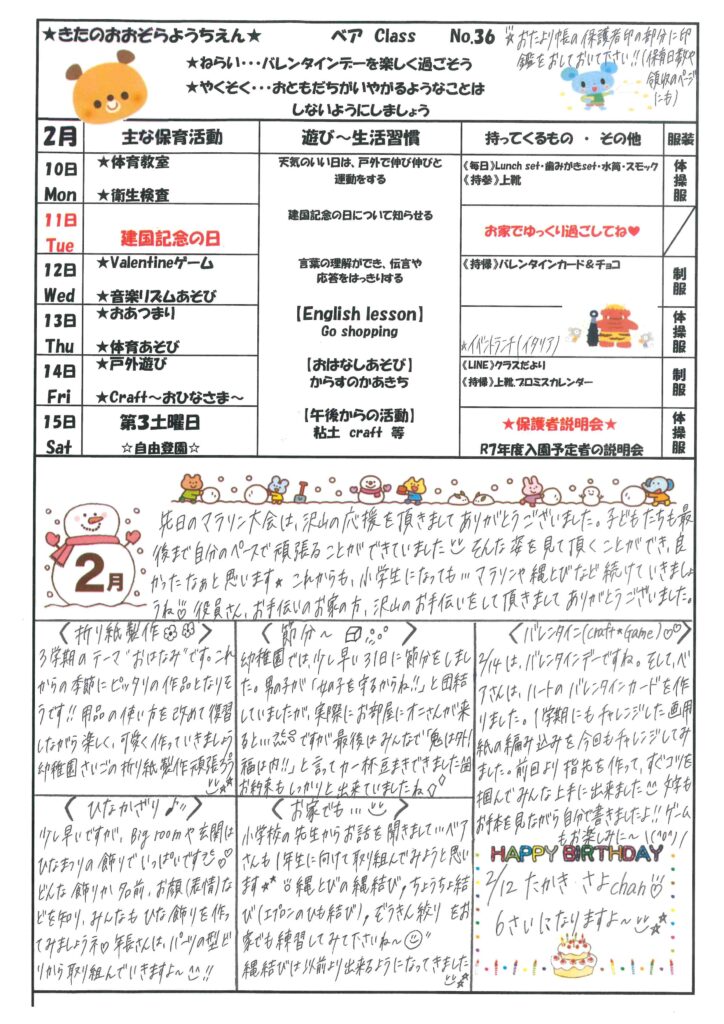 ★きたのおおぞらようちえん★ ベア Class No.36
★ねらい・・・バレンタインデーを楽しく過ごそう
★やくそく・・・おともだちがいやがるようなことは
しないようにしましょう
☆おたより帳の保護者印の部分に印
鑑をおしておいて下さい!!(保育日数や
領収のページ
にも)
2月 主な保育活動 遊び~生活習慣 持ってくるもの ・ その他 服装
10日 Mon
★体育教室
★衛生検査
天気のいい日は、戸外で伸び伸びと
運動をする
《毎日》Lunch set・歯みがきset・水筒・スモック
《持参》上靴
体操服
11日 Tue
建国記念の日
建国記念の日について知らせる
お家でゆっくり過ごしてね♥
12日 Wed
★Valentineゲーム
★音楽リズムあそび
言葉の理解ができ、伝言や
応答をはっきりする
《持帰》バレンタインカード&チョコ
制服
13日 Thu
★おあつまり
★体育あそび
【English lesson】
Go shopping
★イベントランチ(イタリア)
体操服
14日 Fri
★戸外遊び
★Craft~おひなさま~
【おはなしあそび】
からすのかあきち
《LINE》クラスだより
《持帰》上靴、プロミスカレンダー
制服
15日 Sat
第3土曜日
☆自由登園☆
【午後からの活動】
粘土 craft 等
★保護者説明会★
R7年度入園予定者の説明会
体操服
2月
先日のマラソン大会は、沢山の応援を頂きましてありがとうございました。子どもたちも最
後まで自分のペースで頑張ることができていました そんな姿を見て頂くことができ、良
かったなぁと思います★ これからも、小学生になっても…マラソンや縄とびなど続けていきましょ
うね♡ 役員さん、お手伝いのお家の方、沢山のお手伝いをして頂きましてありがとうございました。
〈折り紙製作〉
3学期のテーマ"おはなみ"です。これ
からの季節にピッタリの作品となりそ
うです!! 用品の使い方を改めて復習
しながら楽しく、可愛く作っていきましょう
幼稚園さいごの折り紙製作頑張ろう
〈節分~〉
幼稚園では、少し早い31日に節分をしまし
た。男の子が「女の子を守るからね!!」と団結
していましたが、実際にお部屋にオニさんが来
ると… ですが最後はみんなで「鬼は外!
福は内!!」と言って力一杯豆まきできました
お約束もしっかりと出来ていましたね
〈バレンタイン(Craft★Game)♡♡〉
2/14は、バレンタインデーですね。そして、ベ
アさんは、ハートのバレンタインカードを作
りました。1学期にもチャレンジした画用
紙の編み込みを今回もチャレンジしてみ
ました。前回より指先を作って、すぐコツを
掴んでみんな上手に出来ました 文字も
お手本を見ながら自分で書きましたよ!! ゲーム
もお楽しみに~ \(^o^)/
〈ひなかざり♪〉
少し早いですが、Big roomや玄関は
ひなまつりの飾りでいっぱいです♡
どんな飾りか名前、お顔(表情)な
どを知り、みんなもひな飾りを作っ
てみましょうネ♡ 年長さんは、パーツの型ど
りから取り組んでいきますよ~!!
〈お家でも…〉
小学校の先生からお話を聞きまして…ベア
さんも1年生に向けて取り組んでみようと思い
ます★★ 縄とびの縄結び、ちょうちょ結
び(エプロンのひも結び)、ぞうきん絞り をお
家でも練習してみて下さいね~
縄結びは以前より出来るようになってきました
HAPPY BIRTHDAY
2/12 たかき さよchan♡
6さいになりますよ~